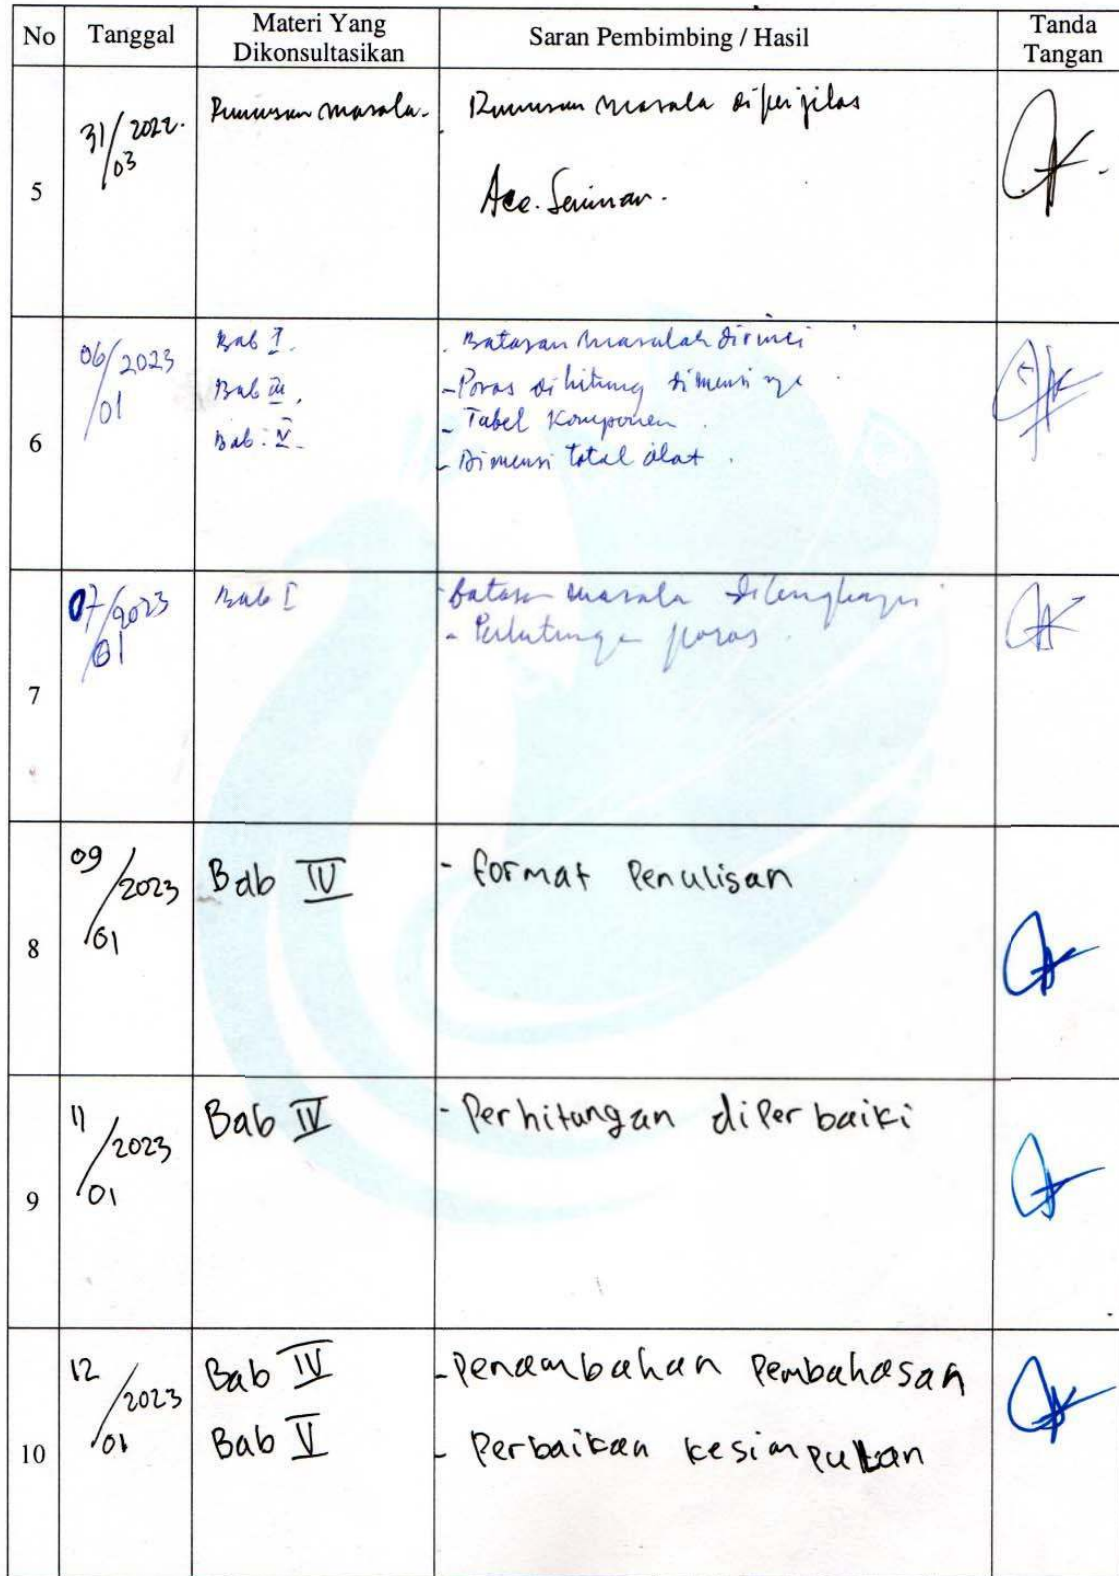 No Tanggal Materi Yang Dikonsultasikan Saran Pembimbing / Hasil Tanda Tangan
5 31/03 2022. Rumusan masala. Rumusan masala diperjelas
Acc. Seminar.
6 06/01 2023 Bab I. - Batasan masalah dirinci
Bab III. - Poros dihitung dimensi nya
Bab. IV. - Tabel Komponen
- Dimensi total alat.
7 07/01 2023 Bab I - batasan masala dilengkapi
- Perhitungan poros.
8 09/01 2023 Bab IV - format Penulisan
9 11/01 2023 Bab IV - Perhitungan diPerbaiki
10 12/01 2023 Bab IV - Penambahan Pembahasan
Bab V - Perbaikan kesimpulan